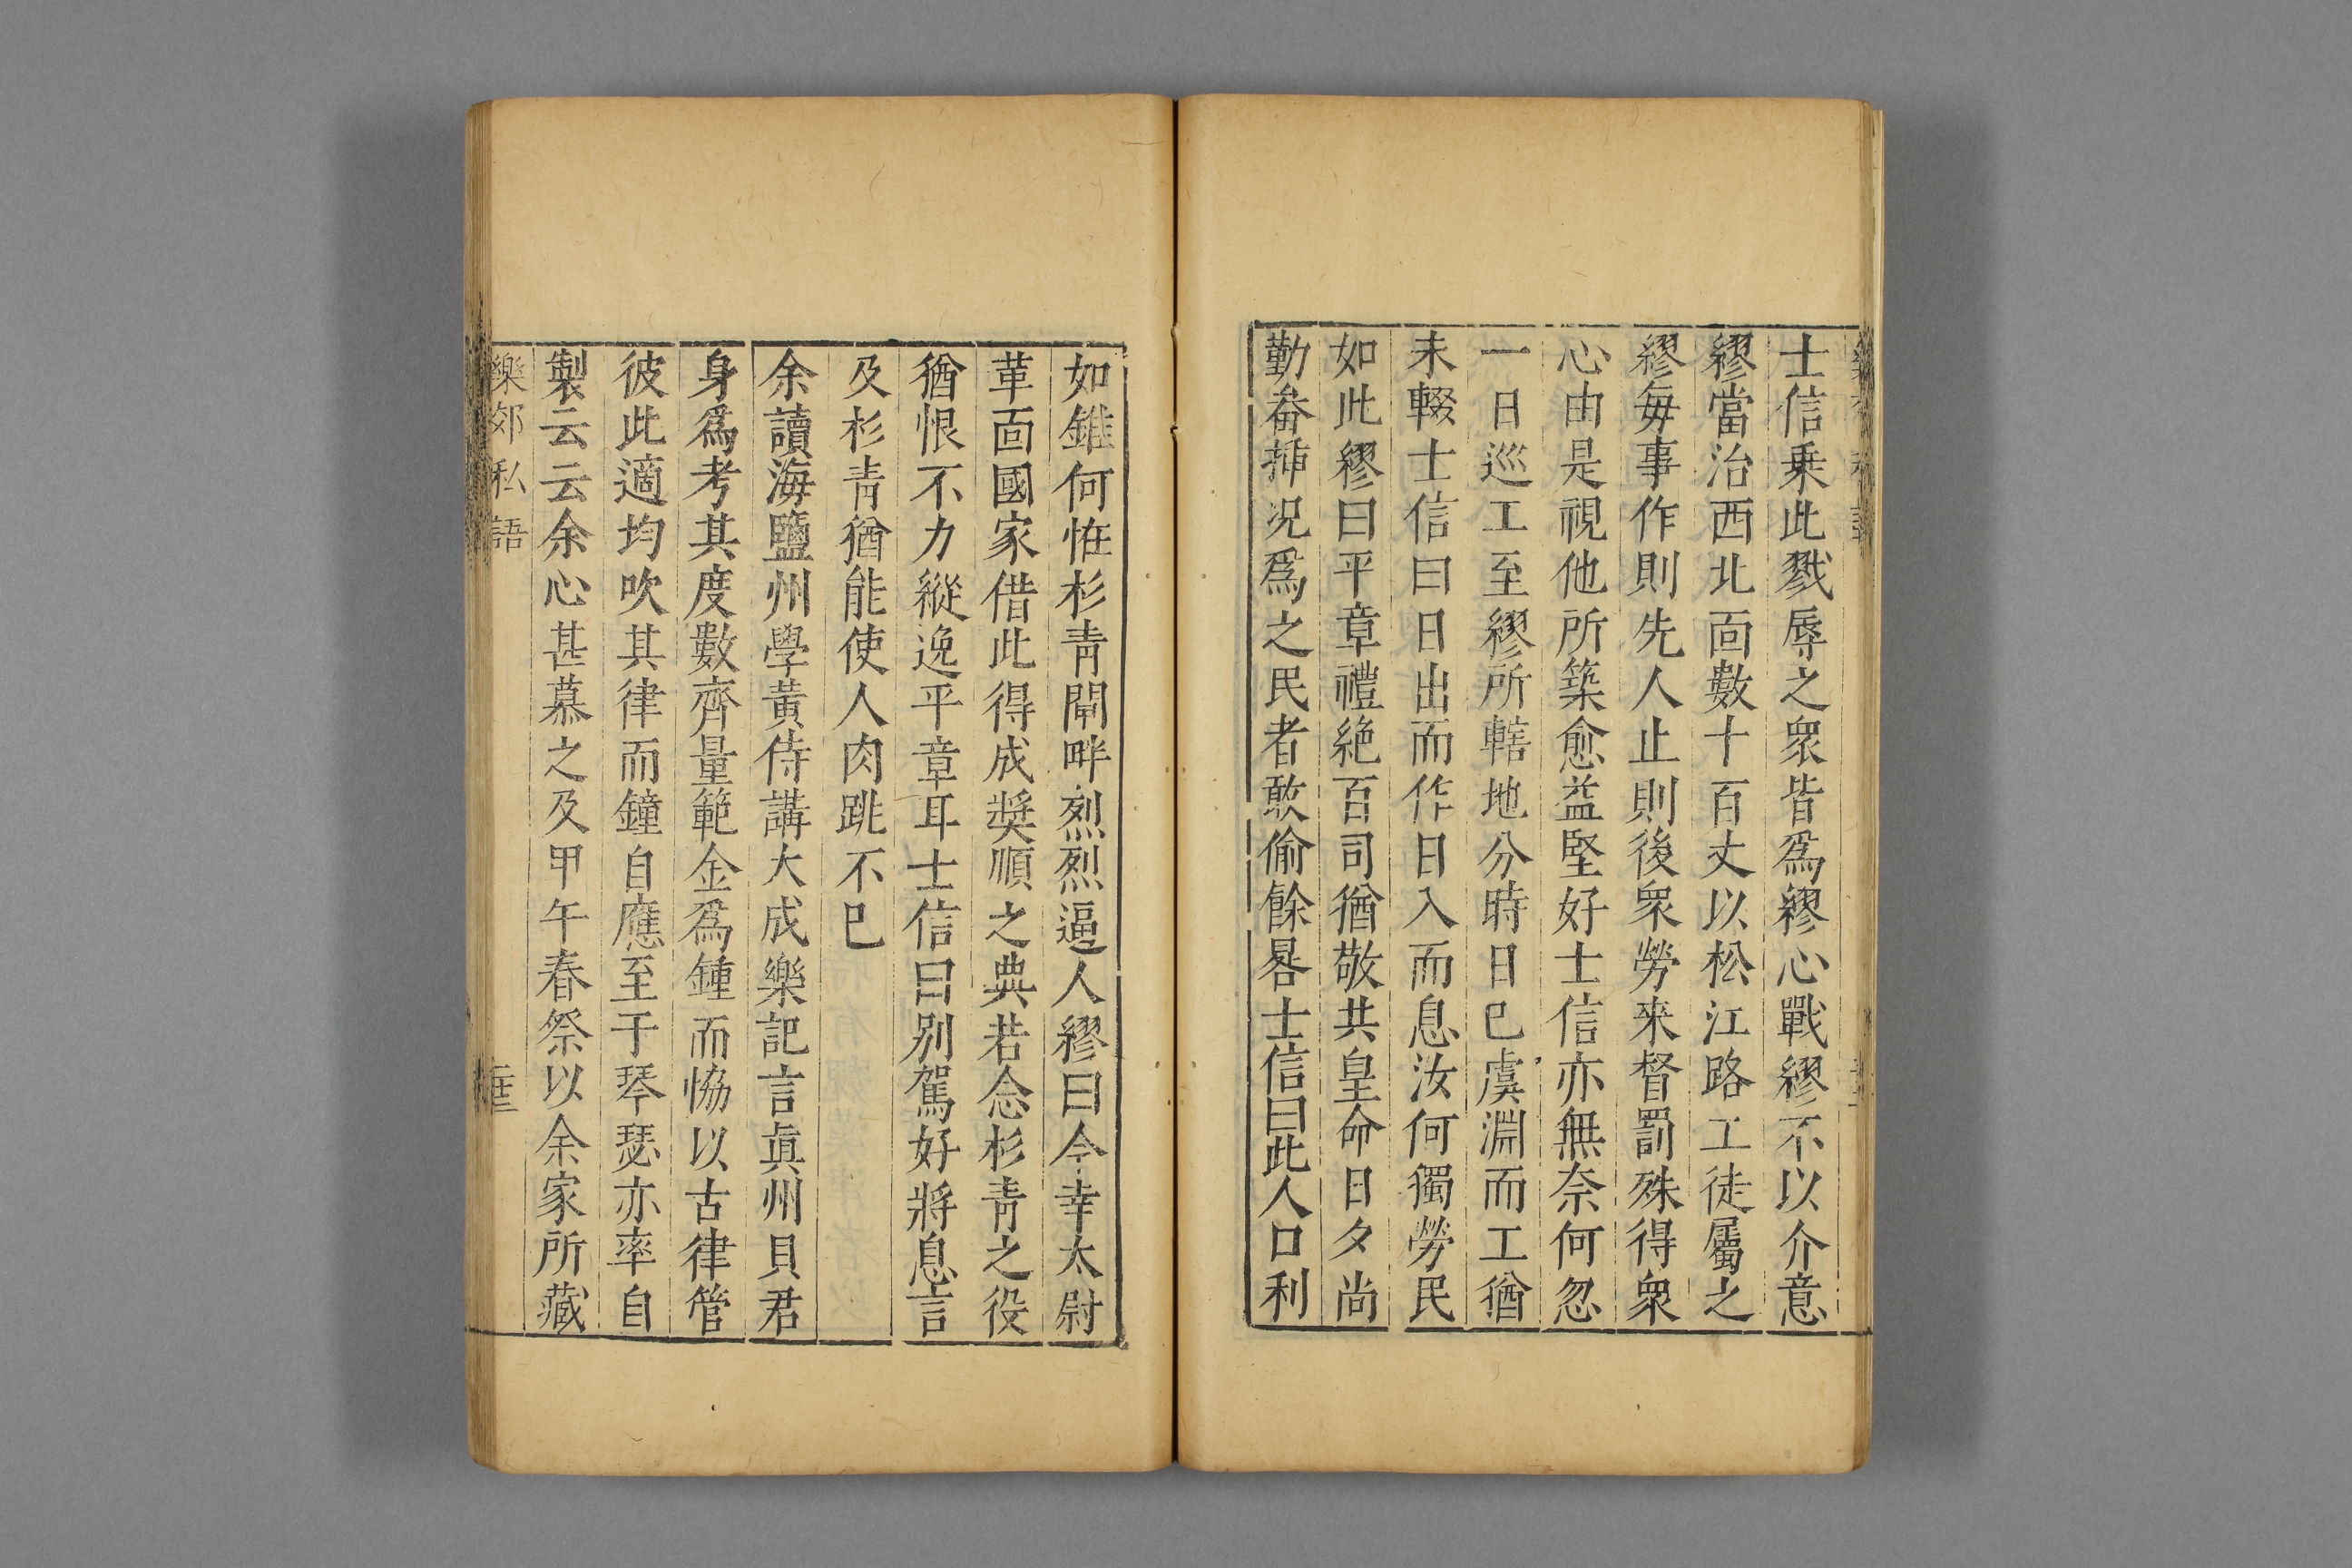 士信乗此戮辱之衆皆爲繆心戰繆不以介意
繆當治西北面數十百丈以松江路工徒屬之
繆每事作則先人止則後衆勞來督罰殊得衆
心由是視他所築愈益堅好士信亦無奈何忽
一日巡工至繆所轄地分時日已虞淵而工猶
未輟士信曰日出而作日入而息汝何獨勞民
如此繆曰平章禮絶百司猶敬共皇命日夕尚
勤畚挿况爲之民者敢偷餘晷士信曰此人口利
如錐何恠杉靑閘畔烈烈逼人繆曰今幸太尉
革面國家借此得成奬順之典若念杉靑之役
猶恨不力縱逸平章耳士信曰别駕好將息言
及杉靑猶能使人肉跳不已
余讀海鹽州學黄侍講大成樂記言眞州貝君
身爲考其度數齊量範金爲鍾而恊以古律管
彼此適均吹其律而鐘自應至于琴瑟亦率自
製云云余心甚慕之及甲午春祭以余家所藏
樂郊私語